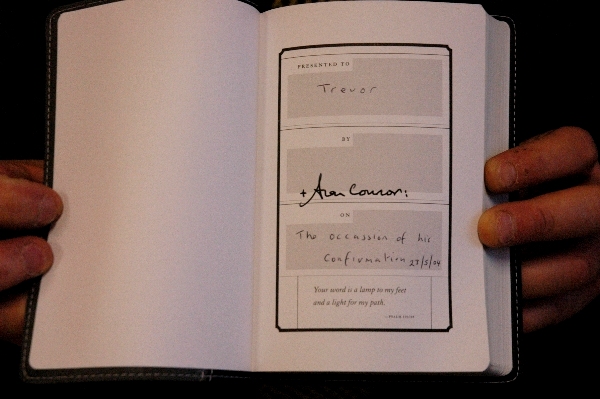 PRESENTED TO
Trevor
BY
ON
The occassion of his
Confirmation 27/5/04
Your word is a lamp to my feet
and a light for my path.